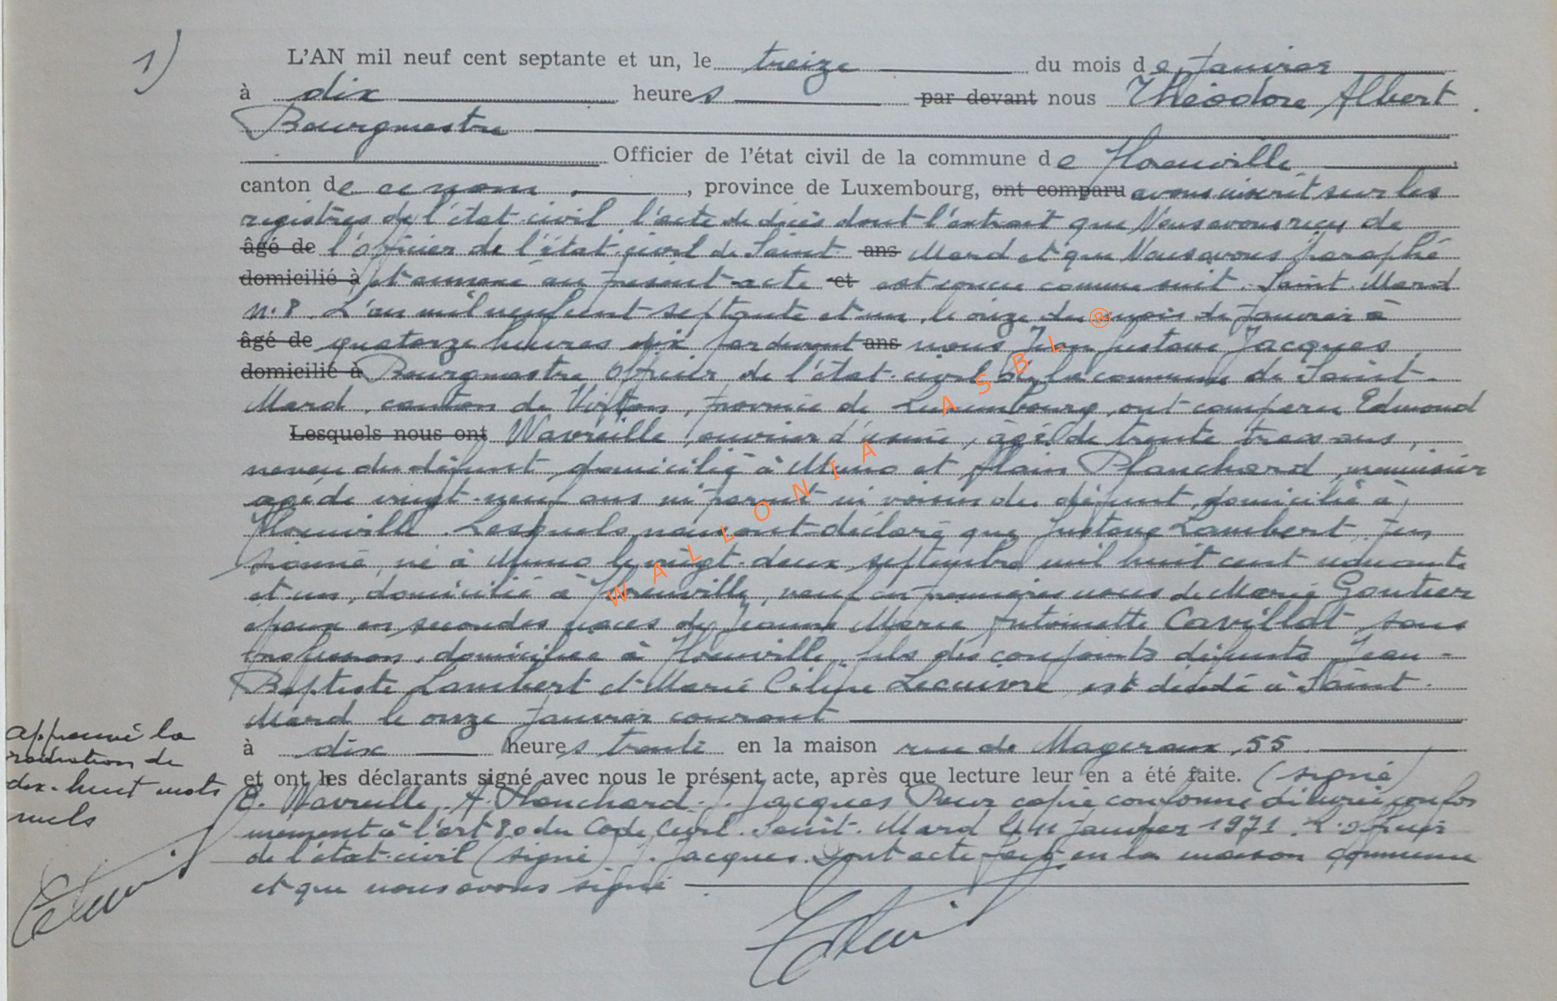 1)
L'AN mil neuf cent septante et un, le treize du mois de Janvier
à dix heures par devant nous Théodore Albert
Bourgmestre
Officier de l'état civil de la commune de Florenville
canton de ce nom, province de Luxembourg, ont comparu avons inscrit sur les
registres de l'état civil l'acte de décès dont l'extrait que Nous avons reçu de
âgé de l'officier de l'état civil de Saint ans Mard et que Nous avons paraphé
domicilié à et annexé au présent acte et est conçu comme suit. Saint. Mard
n° 8. L'an mil neuf cent septante et un, le onze du mois de Janvier à
âgé de quatorze heures dix par devant ans nous Jean Gustave Jacques
domicilié à Bourgmestre Officier de l'état civil de la commune de Saint-
Mard, canton de Virton, province de Luxembourg, ont comparu Edmond
Lesquels nous ont Wavreille, ouvrier d'usine, âgé de trente trois ans,
neveu du défunt domicilié à Muno et Alain Planchard, menuisier
âgé de vingt-neuf ans ni parent ni voisin du défunt, domicilié à
Florenville. Lesquels nous ont déclaré que Gustave Lambert, pen
sionné, né à Muno le vingt-deux septembre mil huit cent nonante
et un, domicilié à Florenville, veuf en premières noces de Marie Goutier
époux en secondes noces de Jeanne Marie Antoinette Cavillot sans
profession, domiciliée à Florenville, fils des conjoints défunts Jean-
Baptiste Lambert et Marie Céline Lecuivre, est décédé à Saint-
Mard le onze Janvier courant
à dix heures trente en la maison rue de Mageroux, 55
et ont les déclarants signé avec nous le présent acte, après que lecture leur en a été faite. (signé)
E. Wavreille. A. Planchard. J. Jacques Pour copie conforme délivrée confor
mément à l'art 80 du Code Civil. Saint-Mard le 11 janvier 1971. L'officier
de l'état civil (signé) J. Jacques. Dont acte fait en la maison commune
et que nous avons signé
approuvé la
radiation de
dix-huit mots
nuls
WALLONIA ASBL ®